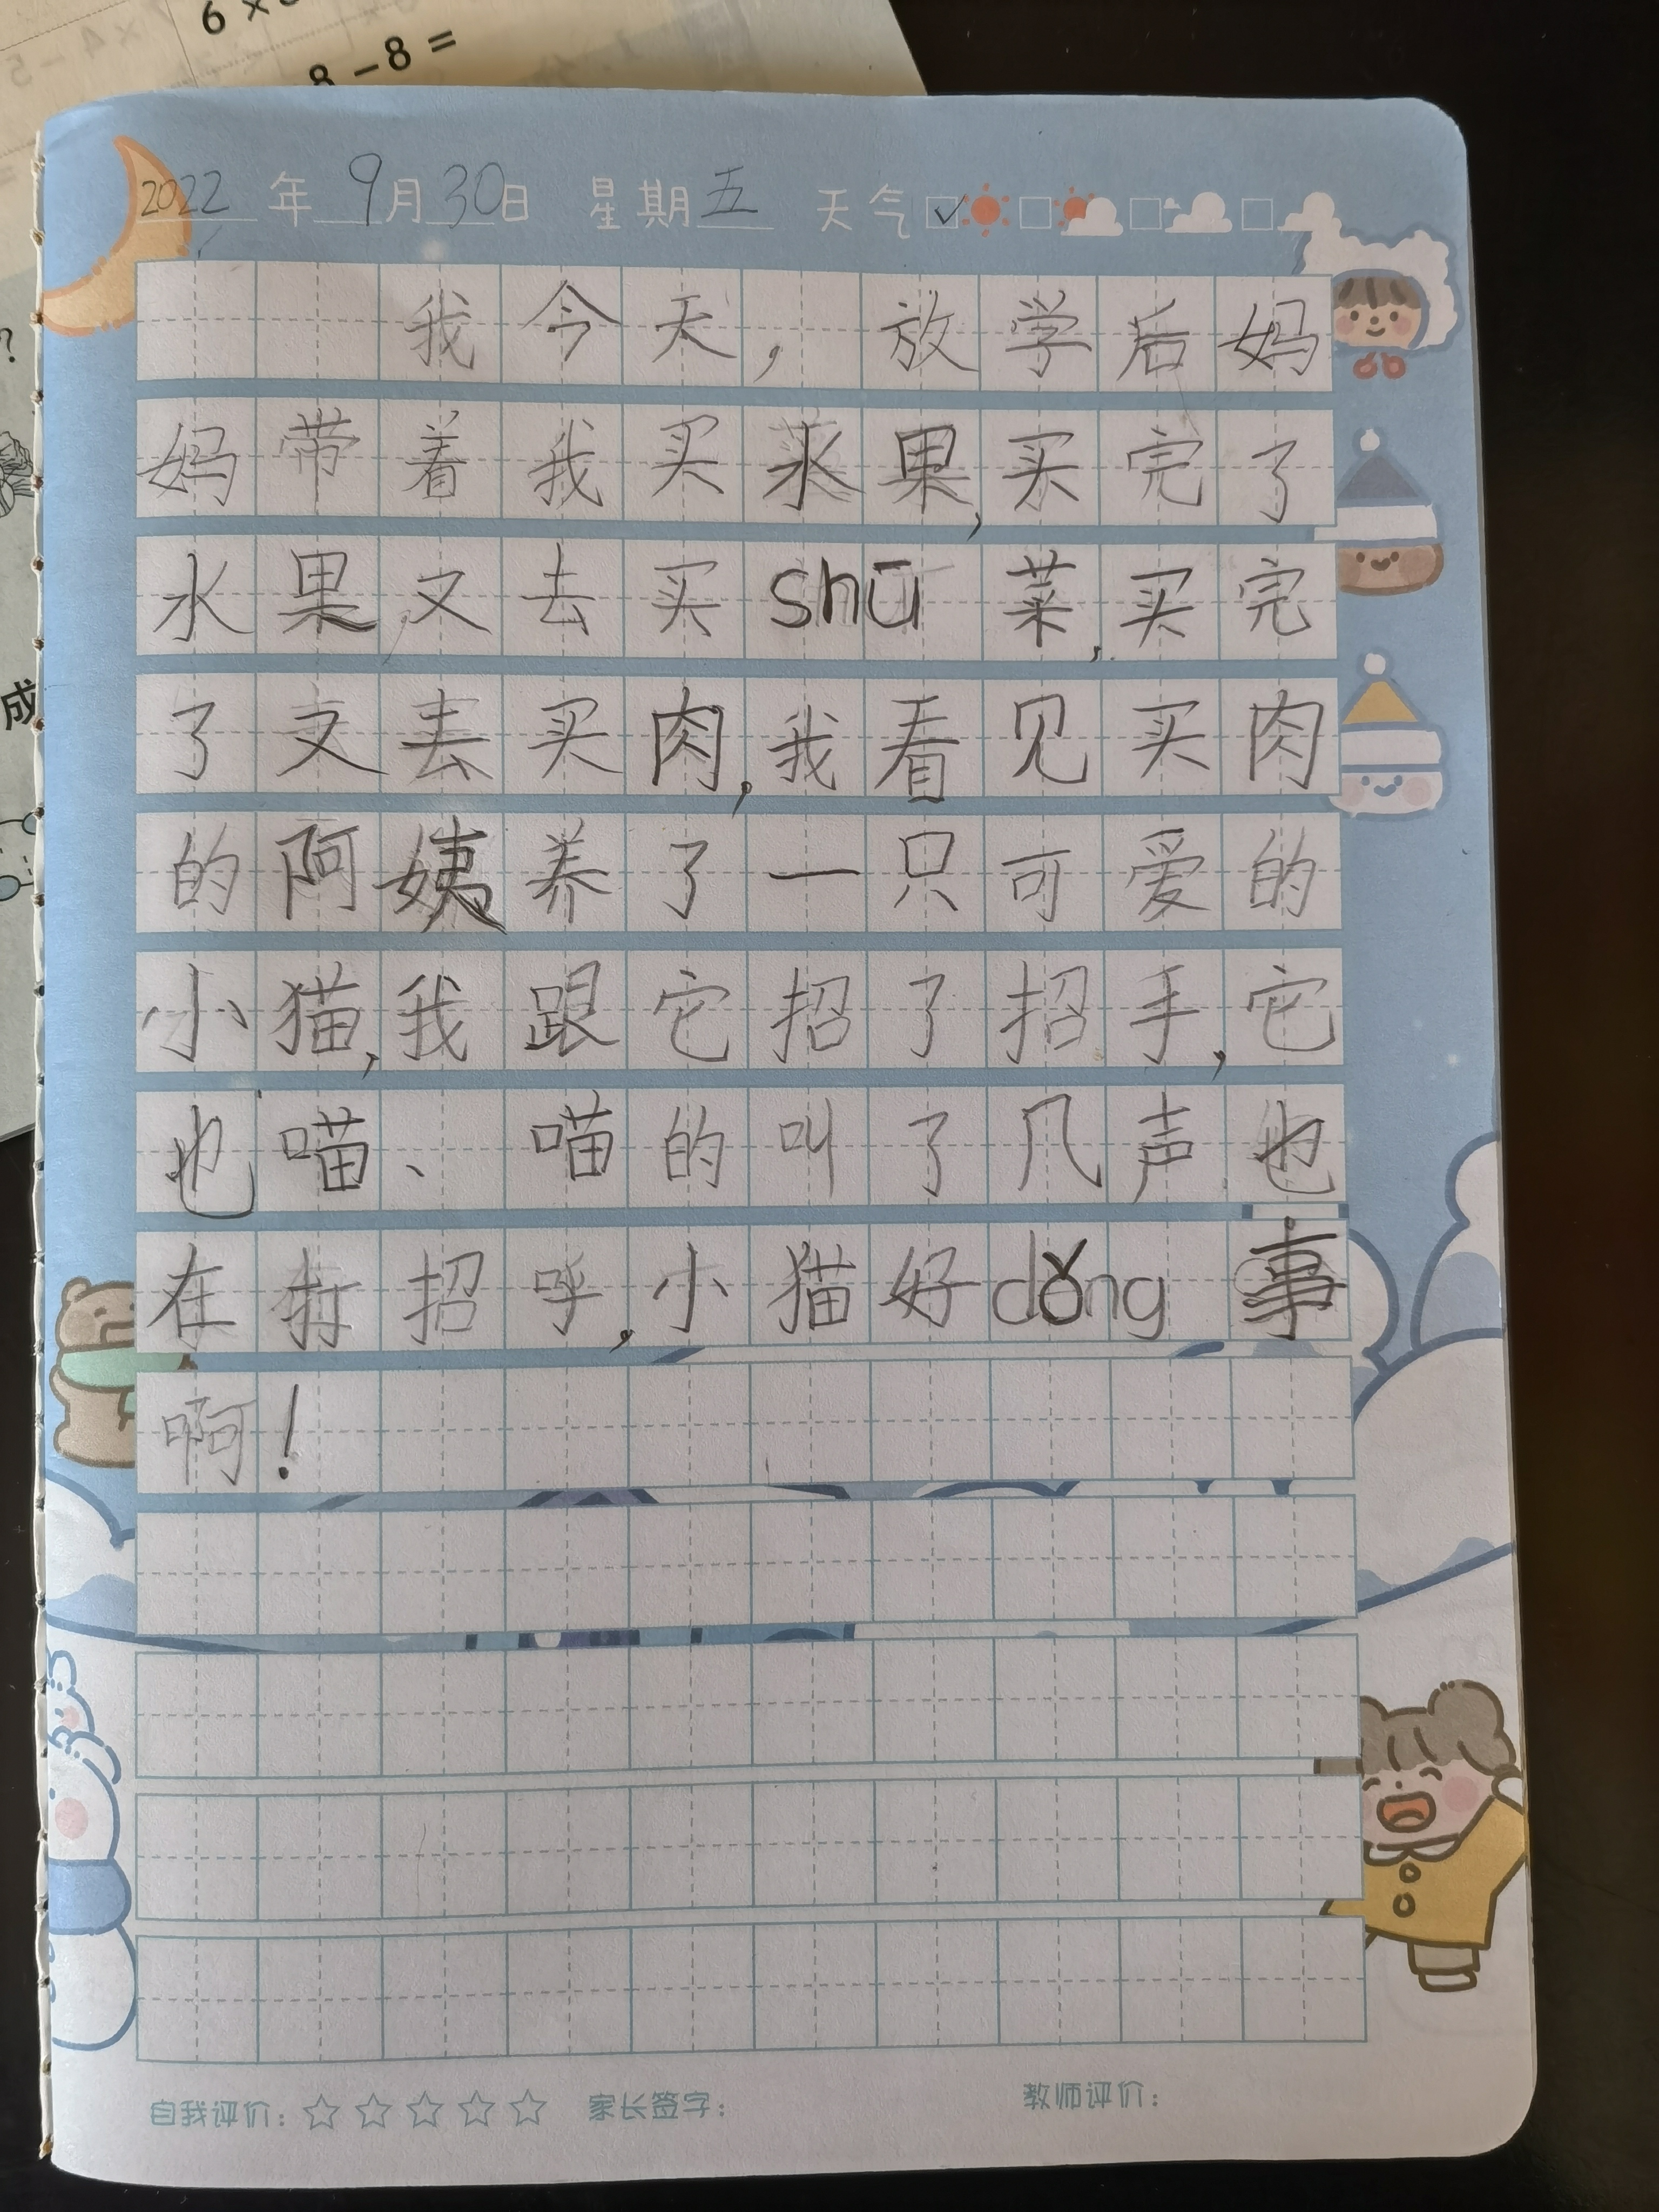 6×
8-8=
2022年9月30日 星期五 天气
我今天，放学后妈
妈带着我买水果,买完了
水果,又去买shū菜,买完
了又去买肉,我看见买肉
的阿姨养了一只可爱的
小猫,我跟它招了招手,它
也喵、喵的叫了几声也
在打招呼,小猫好dǒng事
啊!
自我评价: 家长签字: 教师评价: